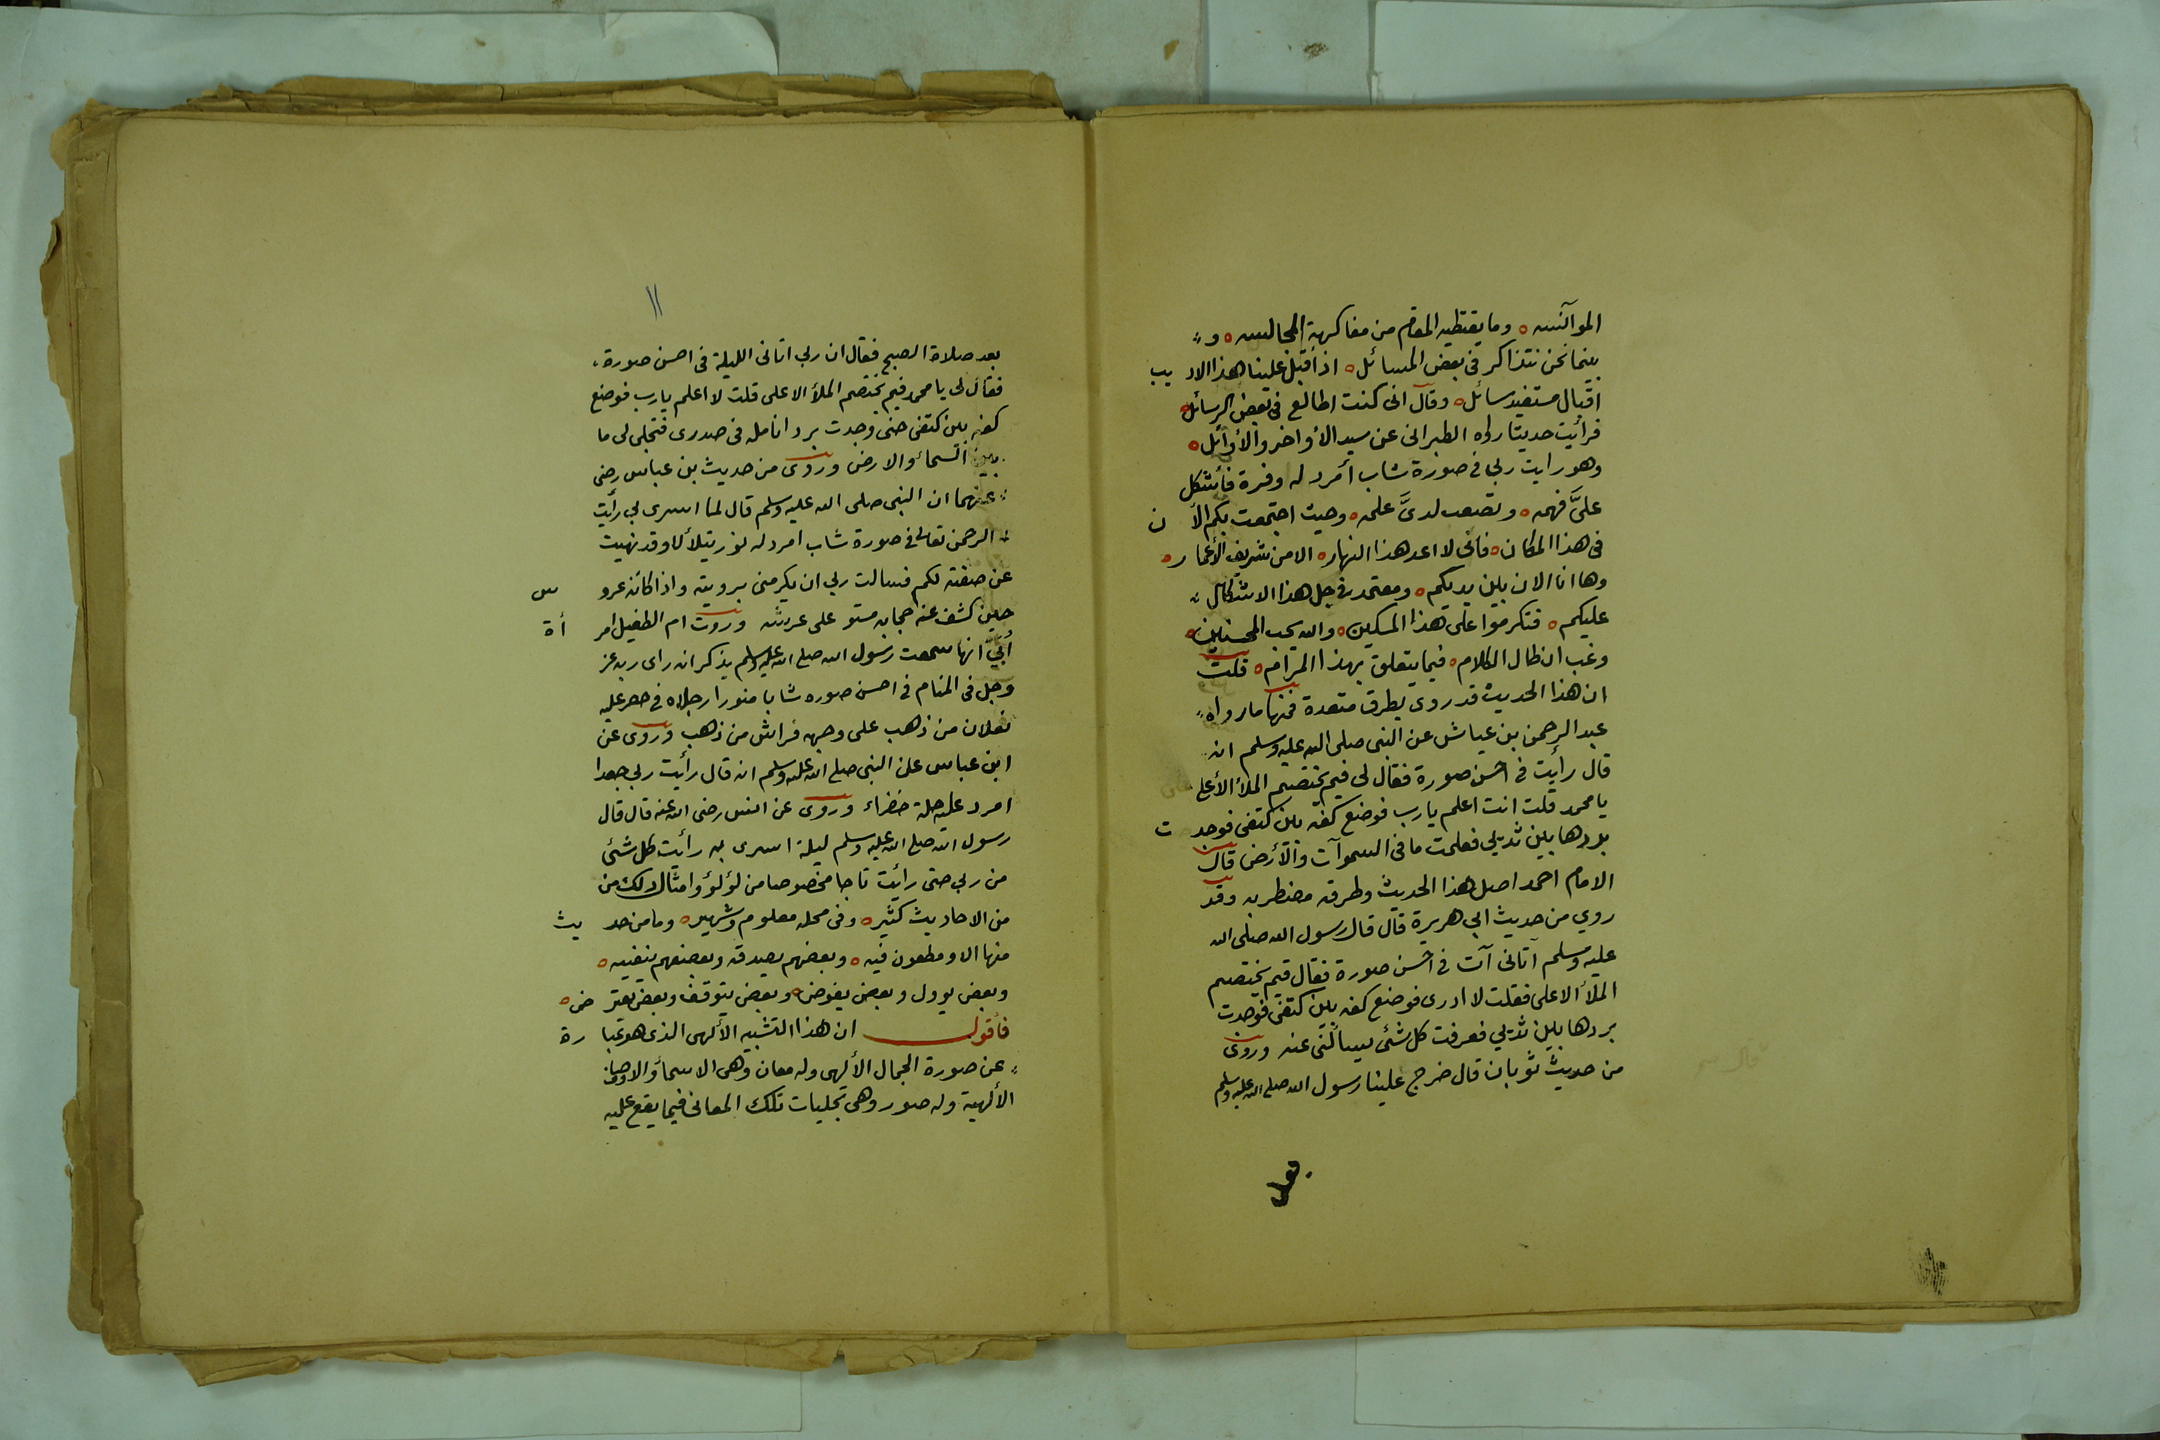 الموآنسه ٥ وما يقتظيه المقام من مفاكهة المجالسه ٥ و
بينما نحن نتذاكر فى بعض المسائل ٥ اذ أقبل علينا هذا الاديب
اقبال مستفيد سائل ٥ وقال انى كنت اطالع فى بعض الرسائل ٥
فرأيت حديثا رواه الطبرانى عن سيد الأواخر والأوآئل ٥
وهو رايت ربى فى صورة شاب أمرد له وفرة فأشكل
علىَّ فهمه ٥ وتصعب لدىَّ علمه ٥ وحيث اجتمعت بكم الأن
فى هذا المكان ٥ فأنى لا اعد هذا النهار ٥ الا من شريف الأعمار ٥
وها انا الان بين يديكم ٥ ومعتمد فى حل هذا الاشكال
عليكم ٥ فتكرموا على هذا المسكين ٥ والله يحب المحسنين ٥
وغب ان طال الكلام ٥ فيما يتعلق بهذا المرام ٥ قلت
ان هذا الحديث قد روى بطرق متعدة فمنها ما رواه
عبد الرحمن بن عياش عن النبى صلى الله عليه وسلم انه
قال رأيت فى احسن صورة فقال لى فيم يختصم الملأ الأعلى
يا محمد قلت انت اعلم يا رب فوضع كفه بين كتفى فوجدت
بردها بين ثديي فعلمت ما فى السموآت والأرض قال
الامام احمد اصل هذا الحديث وطرقه مضطربه وقد
روي من حديث ابي هريرة قال قال رسول الله صلى الله
عليه وسلم آتانى آت فى احسن صورة فقال فيم يختصم
الملأ الاعلى فقلت لا ادرى فوضع كفه بين كتفى فوجدت
بردها بين ثديي فعرفت كل شئى يسألنى عنه وروى
من حديث ثوبان قال خرج علينا رسول الله صلى الله عليه وسلم
بعد
١١
بعد صلاة الصبح فقال ان ربى اتانى الليلة فى احسن صورة
فقال لى يا محمد فيم يختصم الملأ الاعلى قلت لا اعلم يا رب فوضع
كفه بين كتفى حتى وجدت برد انامله فى صدرى فتجلى لى ما
بين السماء والارض وروى من حديث بن عباس رضى
عنهما ان النبى صلى الله عليه وسلم قال لما اسرى بى رأيت
الرحمن تعالى فى صورة شاب امرد له نور يتلألأ وقد نهيت
عن صفته لكم فسالت ربى ان يكرمنى برويته واذا كانه عروس
حين كشف عنه حجابه مستو على عرشه وروت ام الطفيل امرأة
أبيّ انها سمعت رسول الله صلى الله عليه وسلم يذكر انه راى ربه عز
وجل فى المنام فى احسن صوره شابا منورا رجلاه فى حصر عليه
نعلان من ذهب على وجهه فراش من ذهب وروى عن
ابن عباس عن النبى صلى الله عليه وسلم انه قال رأيت ربى جعدا
امرد عليه حلة خضراء وروى عن انس رضى الله عنه قال قال
رسول الله صلى الله عليه وسلم ليلة اسرى به رأيت كل شئى
من ربى حتى رأيت تاجا مخصوصا من لؤلؤ وامثال ذلك من
من الاحاديث كثير ٥ وفى محله معلوم وشهير ٥ وما من حديث
منها الا ومطعون فيه ٥ وبعضهم يصدقه وبعضهم ينفيه ٥
وبعض يوول وبعض يفوض ٥ وبعض يتوقف وبعض يعترض ٥
فأقول ان هذا التشبيه الألهى الذى هو عبارة
عن صورة الجمال الألهى وله معان وهى الاسمأ والاوصاف
الألهية وله صور وهى تجليات تلك المعانى فيما يقع عليه